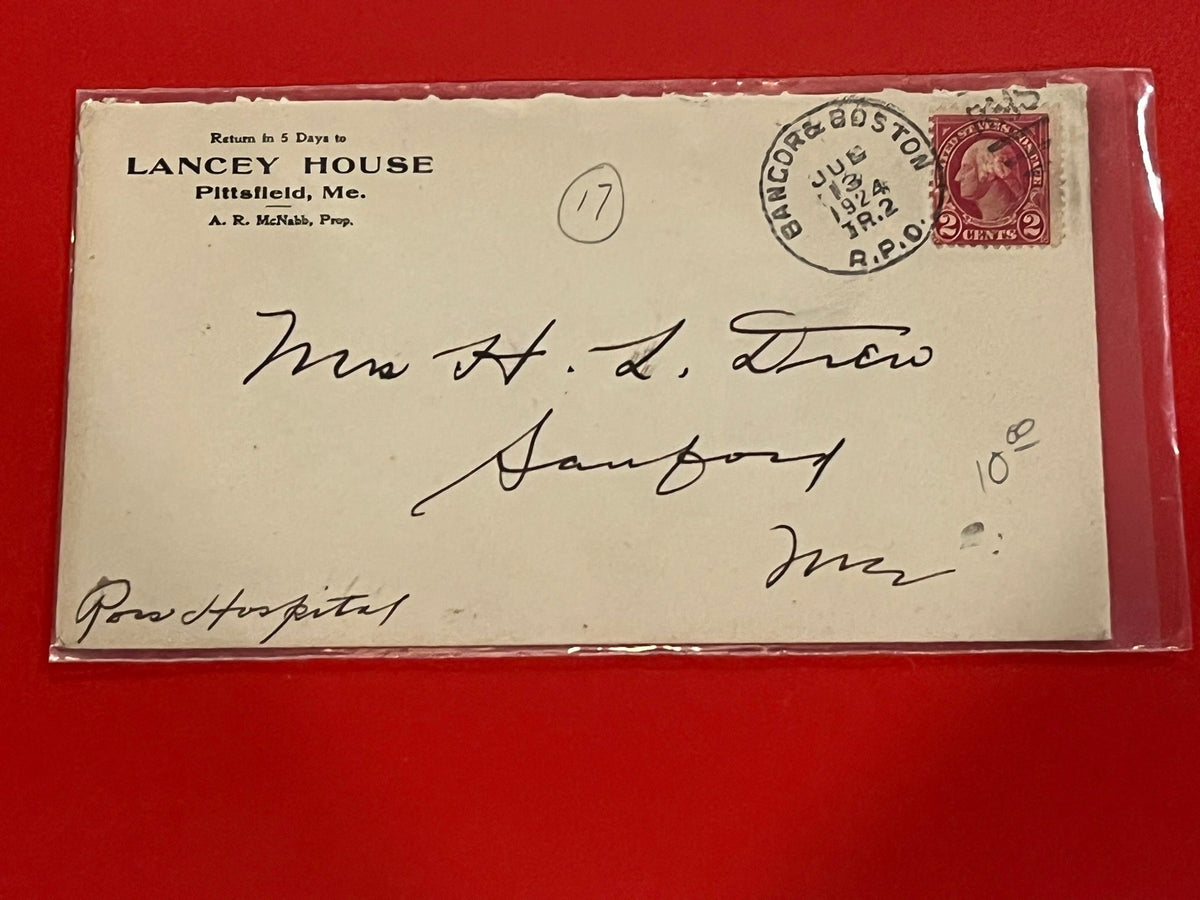 Return in 5 Days to
LANCEY HOUSE
Pittsfield, Me.
A. R. McNabb, Prop.
17
BANGOR & BOSTON
13
1924
TR.2
R.P.O.
UNITED STATES POSTAGE
2 CENTS 2
Mrs H. L. Drew
Sanford
Me
10 00
Ross Hospital